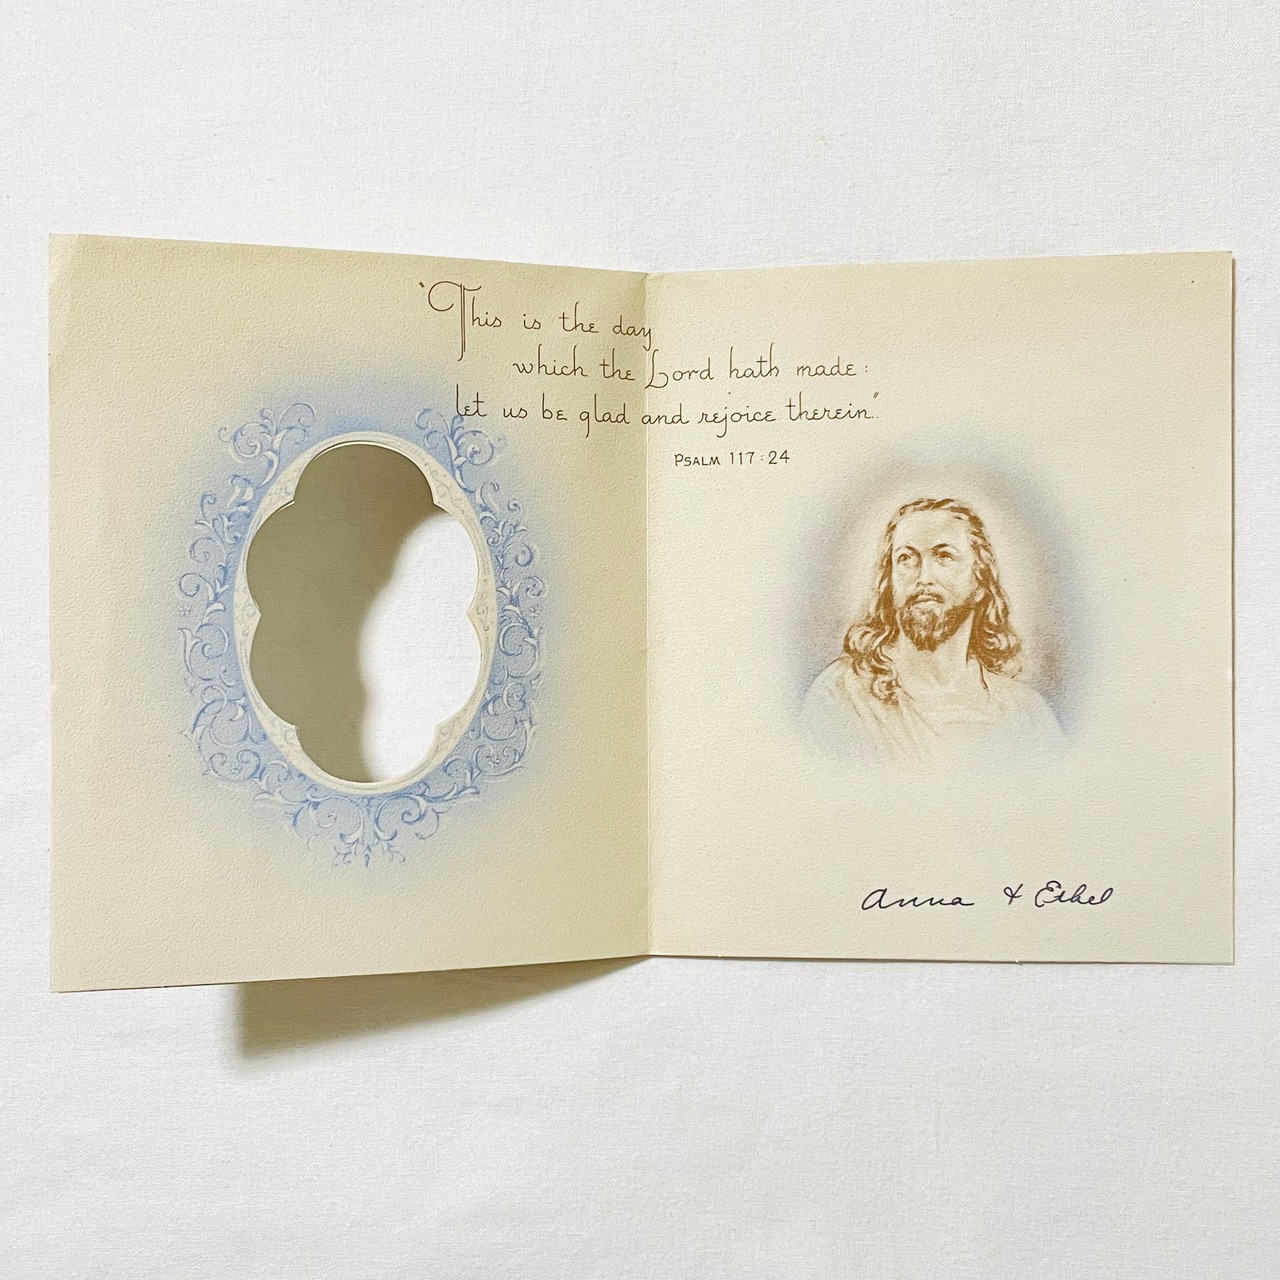 "This is the day
which the Lord hath made:
let us be glad and rejoice therein".
PSALM 117:24
Anna & Ethel